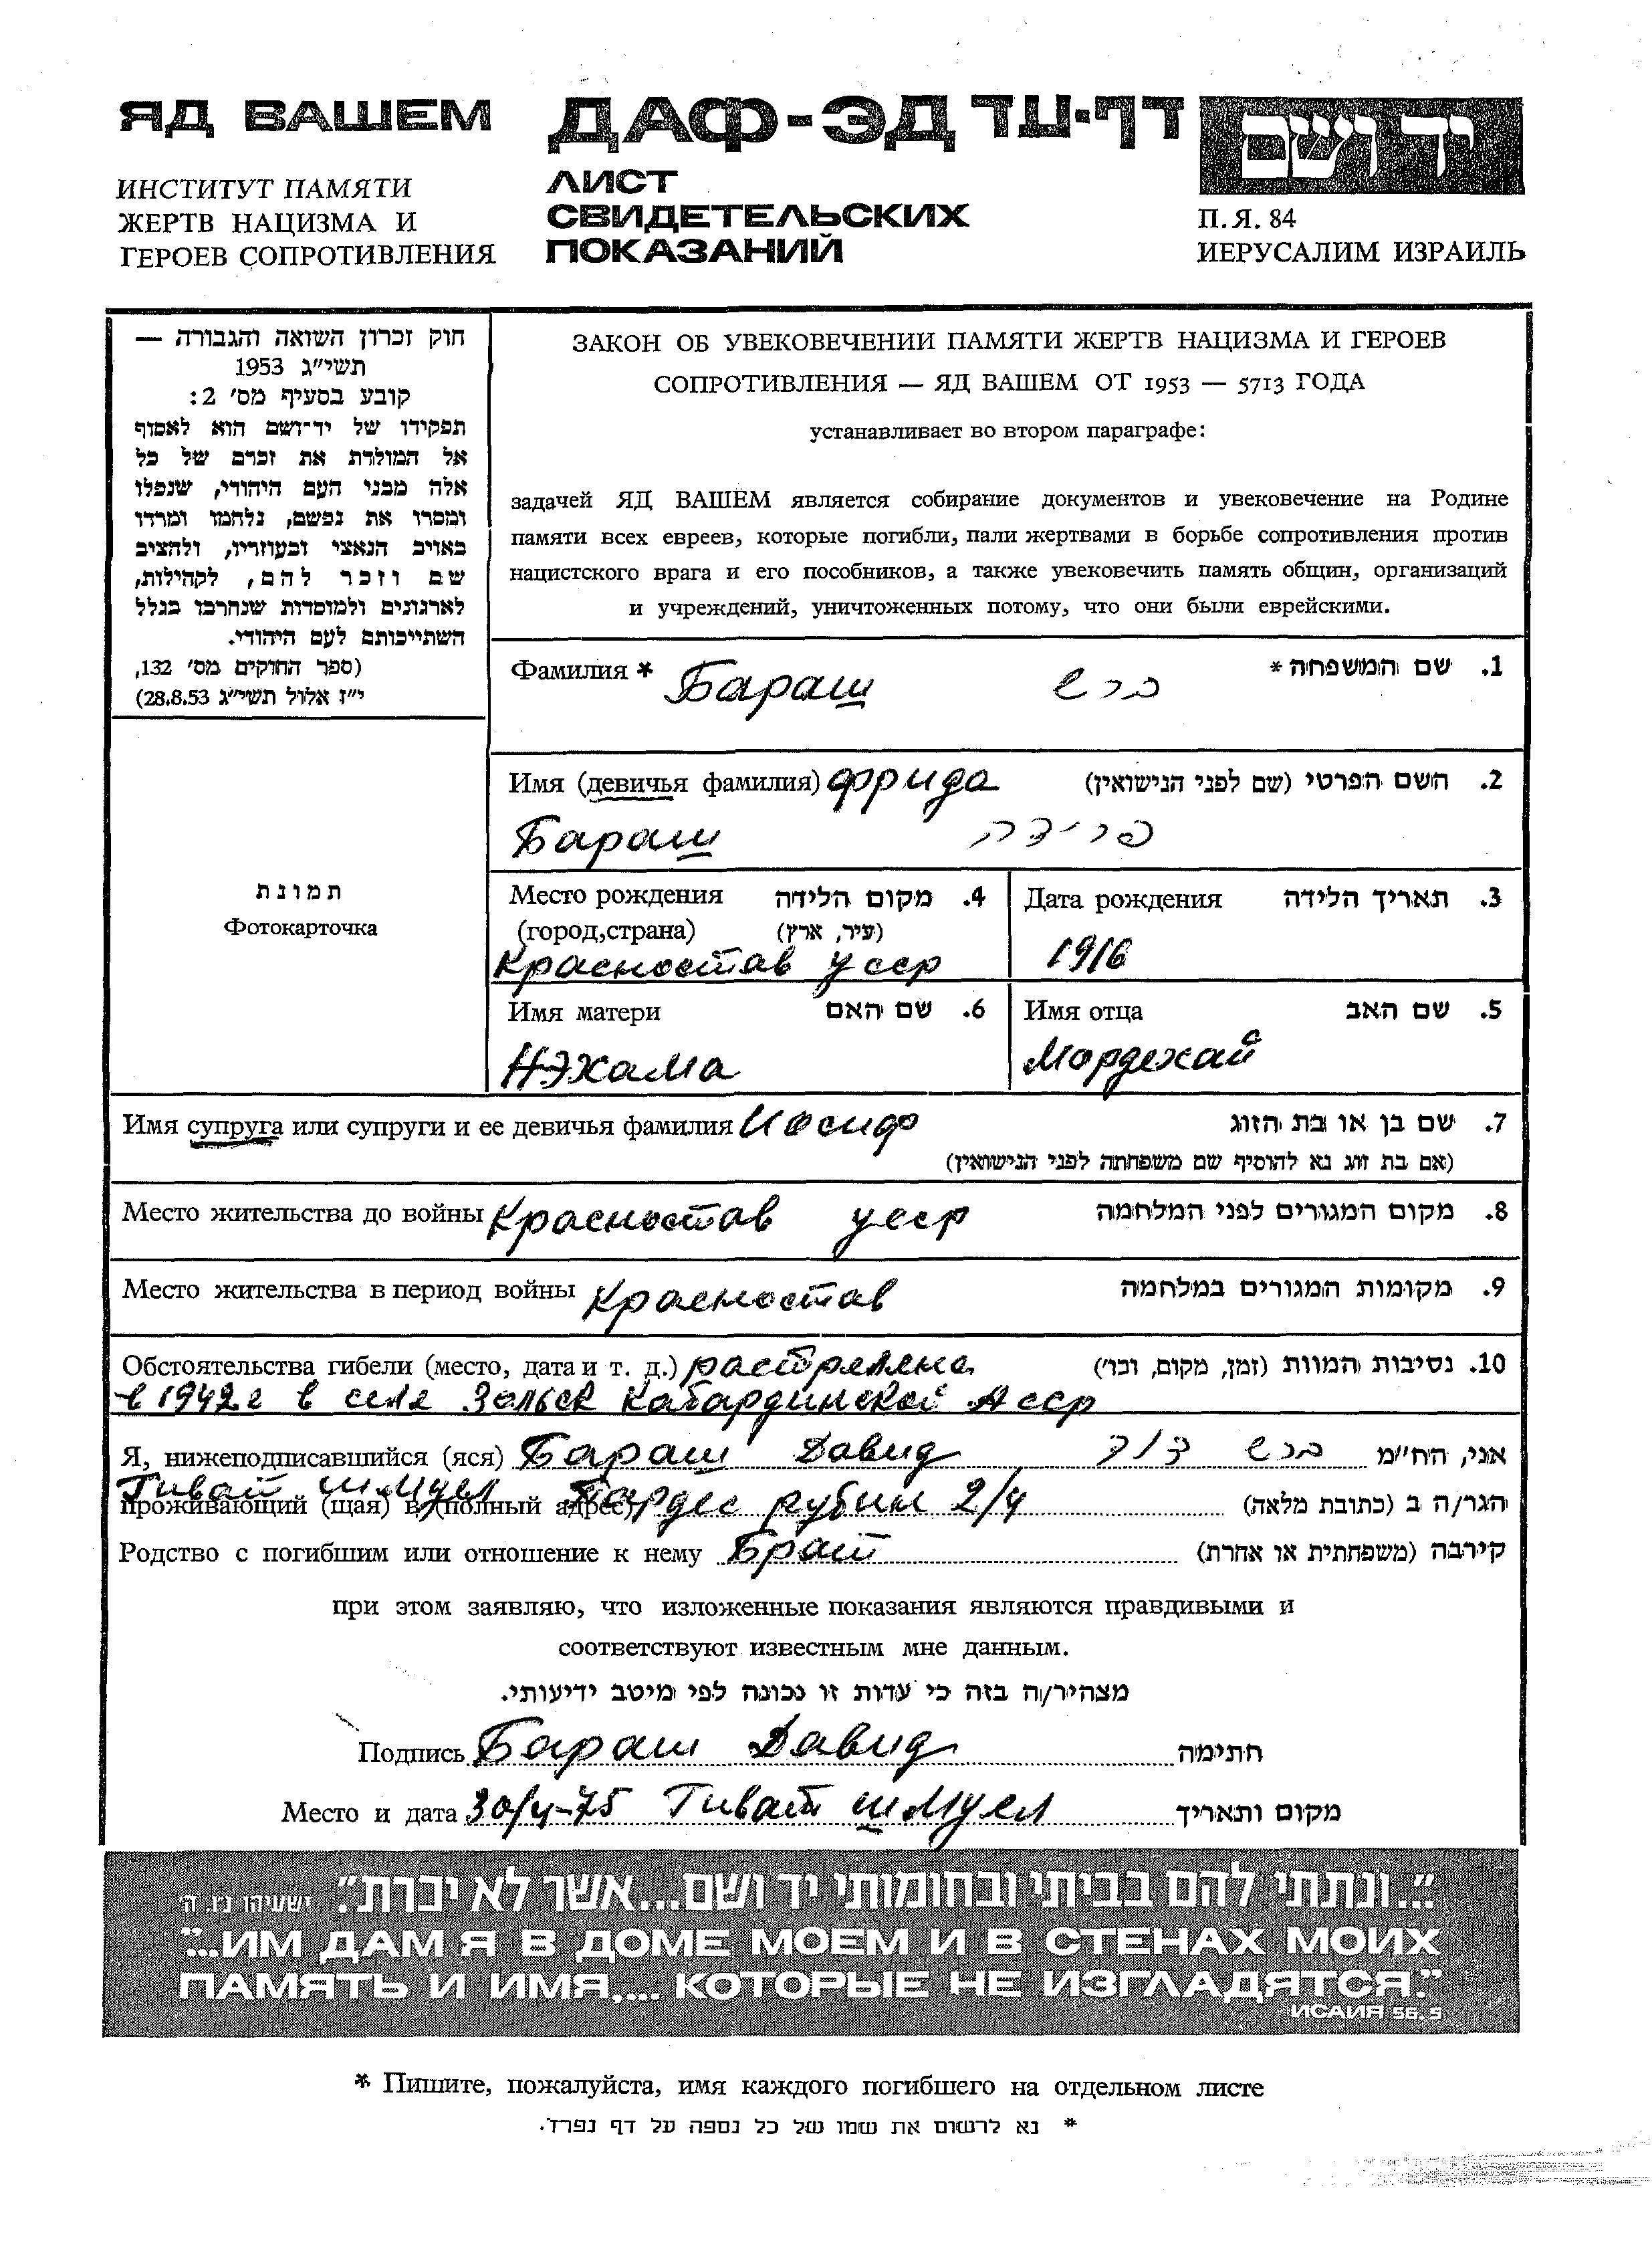 ЯД ВАШЕМ
ИНСТИТУТ ПАМЯТИ
ЖЕРТВ НАЦИЗМА И
ГЕРОЕВ СОПРОТИВЛЕНИЯ
ДАФ-ЭД דף-עד
ЛИСТ
СВИДЕТЕЛЬСКИХ
ПОКАЗАНИЙ
יד ושם
П.Я. 84
ИЕРУСАЛИМ ИЗРАИЛЬ
חוק זכרון השואה והגבורה —
תשי״ג 1953
קובע בסעיף מס׳ 2:
תפקידו של יד־ושם הוא לאסוף
אל המולדת את זכרם של כל
אלה מבני העם היהודי, שנפלו
ומסרו את נפשם, נלחמו ומרדו
באויב הנאצי ובעוזריו, ולהציב
שם וזכר להם, לקהילות,
לארגונים ולמוסדות שנחרבו בגלל
השתייכותם לעם היהודי.
(ספר החוקים מס׳ 132,
י״ז אלול תשי״ג 28.8.53)
תמונת
Фотокарточка
ЗАКОН ОБ УВЕКОВЕЧЕНИИ ПАМЯТИ ЖЕРТВ НАЦИЗМА И ГЕРОЕВ
СОПРОТИВЛЕНИЯ — ЯД ВАШЕМ ОТ 1953 — 5713 ГОДА
устанавливает во втором параграфе:
задачей ЯД ВАШЕМ является собирание документов и увековечение на Родине
памяти всех евреев, которые погибли, пали жертвами в борьбе сопротивления против
нацистского врага и его пособников, а также увековечить память общин, организаций
и учреждений, уничтоженных потому, что они были еврейскими.
Фамилия * Бараш ברש 1. שם המשפחה *
Имя (девичья фамилия) Фрида 2. השם הפרטי (שם לפני הנישואין)
Бараш פרידה
Место рождения 4. מקום הלידה
(город,страна) (עיר, ארץ)
Красностав усср
Дата рождения 3. תאריך הלידה
1916
Имя матери 6. שם האם
Нэхама
Имя отца 5. שם האב
Мордехай
Имя супруга или супруги и ее девичья фамилия Иосиф 7. שם בן או בת הזוג
(אם בת זוג נא להוסיף שם משפחתה לפני הנישואין)
Место жительства до войны Красностав усср 8. מקום המגורים לפני המלחמה
Место жительства в период войны Красностав 9. מקומות המגורים במלחמה
Обстоятельства гибели (место, дата и т. д.) растреляна 10. נסיבות המוות (זמן, מקום, וכו׳)
в 1942г в селе Зольск Кабардинской Асср
Я, нижеподписавшийся (яся) Бараш Давид ברש דוד אני, הח״מ
Гиват шмуел Пардес рубин 2/4
проживающий (щая) в (полный адрес) הגר/ה ב (כתובת מלאה)
Родство с погибшим или отношение к нему Брат קירבה (משפחתית או אחרת)
при этом заявляю, что изложенные показания являются правдивыми и
соответствуют известным мне данным.
מצהיר/ה בזה כי עדות זו נכונה לפי מיטב ידיעותי.
Подпись Бараш Давид חתימה
Место и дата 30/4-75 Гиват шмуел מקום ותאריך
״..ונתתי להם בביתי ובחומותי יד ושם...אשר לא יכרת״. ישעיהו נ״ו. ה׳
"...ИМ ДАМ Я В ДОМЕ МОЕМ И В СТЕНАХ МОИХ
ПАМЯТЬ И ИМЯ.... КОТОРЫЕ НЕ ИЗГЛАДЯТСЯ."
ИСАИЯ 56.5
* Пишите, пожалуйста, имя каждого погибшего на отдельном листе
* נא לרשום את שמו של כל נספה על דף נפרד.